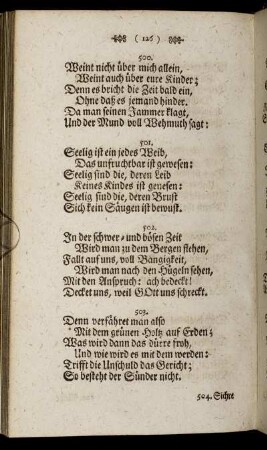 ( 126 )
500.
Weint nicht über mich allein,
Weint auch über eure Kinder;
Denn es bricht die Zeit bald ein,
Ohne daß es jemand hinder.
Da man seinen Jammer klagt,
Und der Mund voll Wehmuth sagt:
501.
Seelig ist ein jedes Weib,
Das unfruchtbar ist gewesen:
Seelig sind die, deren Leib
Keines Kindes ist genesen:
Seelig sind die, deren Brust
Sich kein Säugen ist bewust.
502.
In der schwer- und bösen Zeit
Wird man zu dem Bergen flehen,
Fallt auf uns, voll Bangigkeit,
Wird man nach den Hügeln sehen,
Mit den Anspruch: ach bedeckt!
Decket uns, weil GOtt uns schreckt.
503.
Denn verfähret man also
Mit dem grünen Holtz auf Erden;
Was wird dann das dürre froh,
Und wie wird es mit dem werden:
Trifft die Unschuld das Gericht;
So besteht der Sünder nicht.
504. Sichre